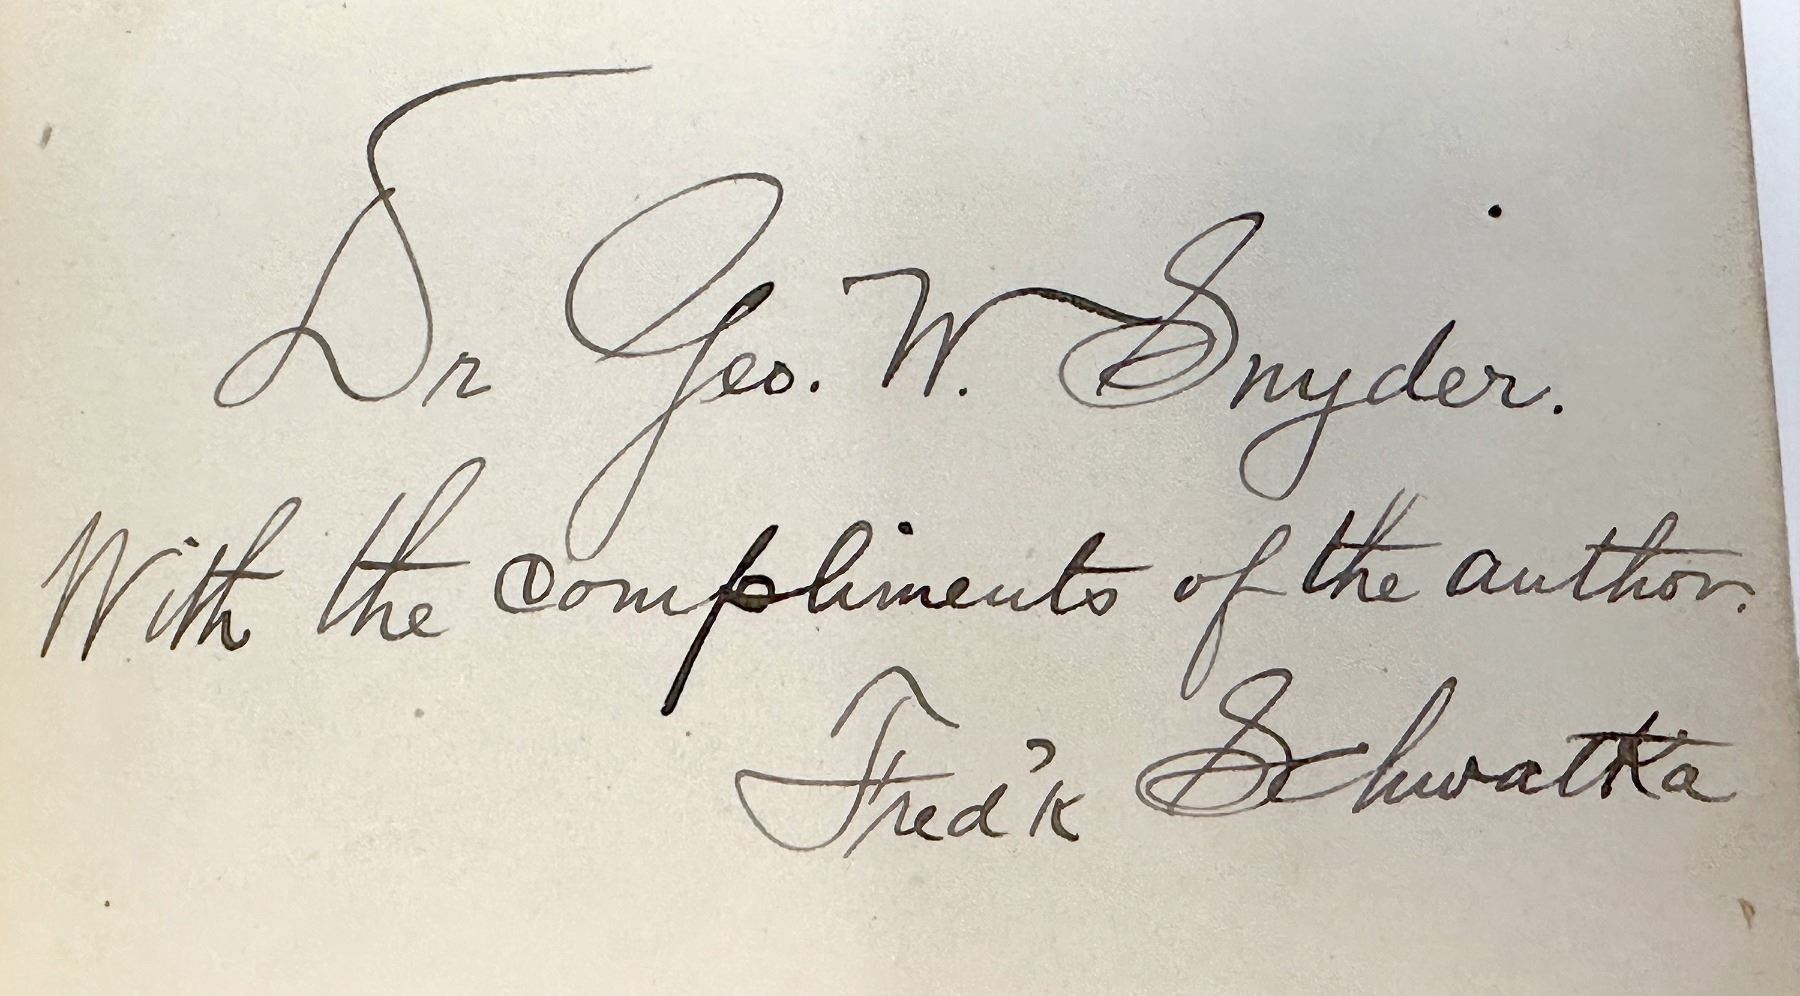 Dr Geo. W. Snyder.
With the compliments of the author.
Fred'k Schwatka